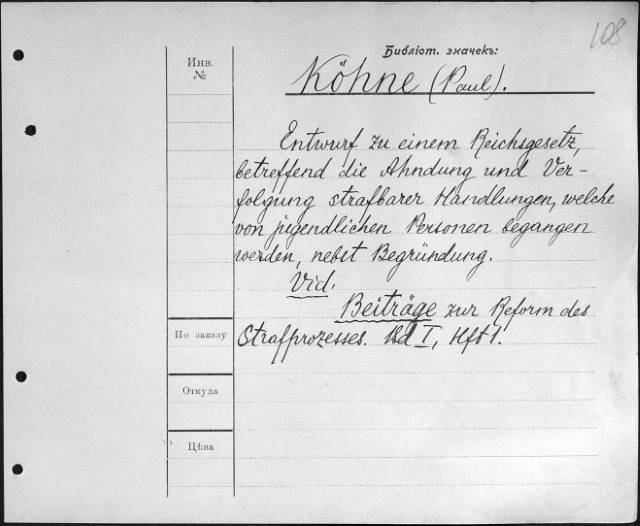 108
Библіот. значекъ:
Инв.
№
Köhne (Paul).
Entwurf zu einem Reichsgesetz,
betreffend die Ahndung und Ver-
folgung strafbarer Handlungen, welche
von jugendlichen Personen begangen
werden, nebst Begründung.
Vid.
Beiträge zur Reform des
По заказу
Strafprozesses. Bd I, Hft 1.
Откуда
Цѣна